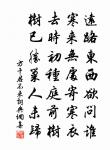 遠路東西欲問誰
寒來無處寄寒衣
去時初種庭前樹
樹已勝巢人未歸
方干君不來詞典網